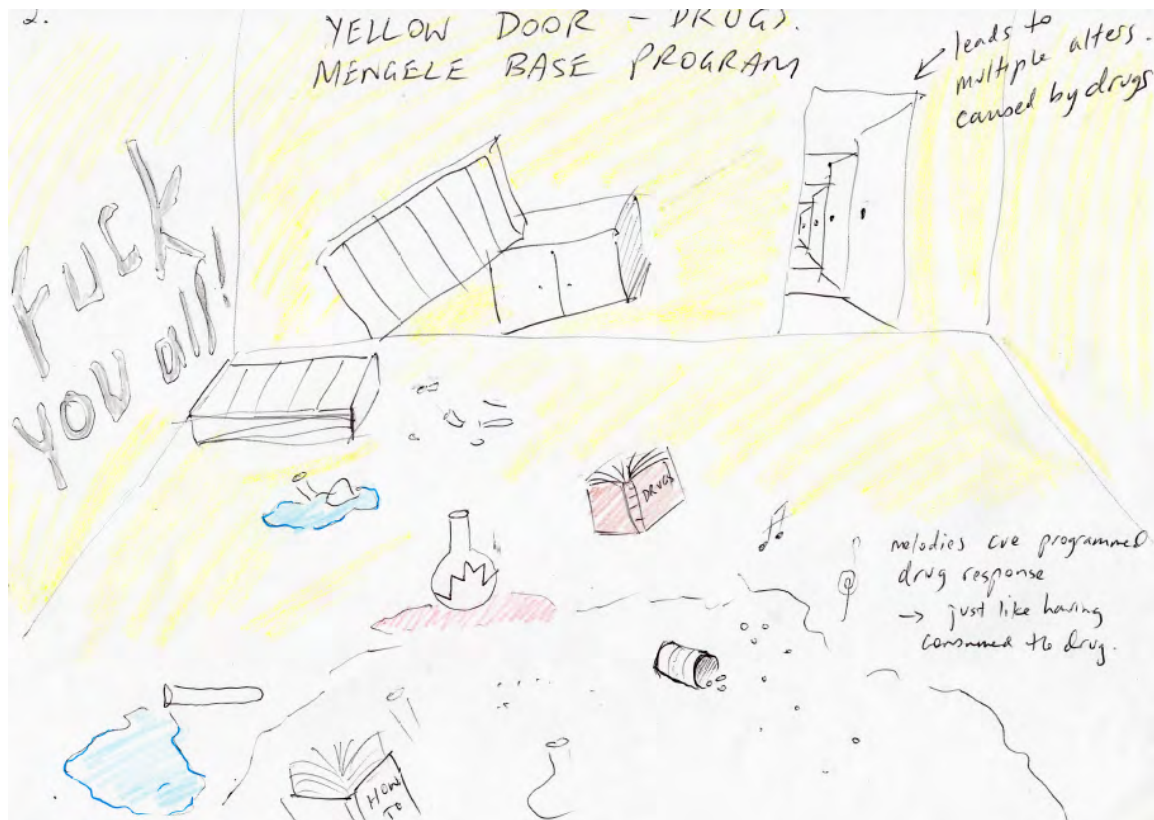 2.
YELLOW DOOR - DRUGS.
MENGELE BASE PROGRAM
leads to
multiple alters.
caused by drugs
FUCK
you all!
DRUGS
melodies cue programmed
drug response
→ just like having
consumed the drug.
HOW
TO